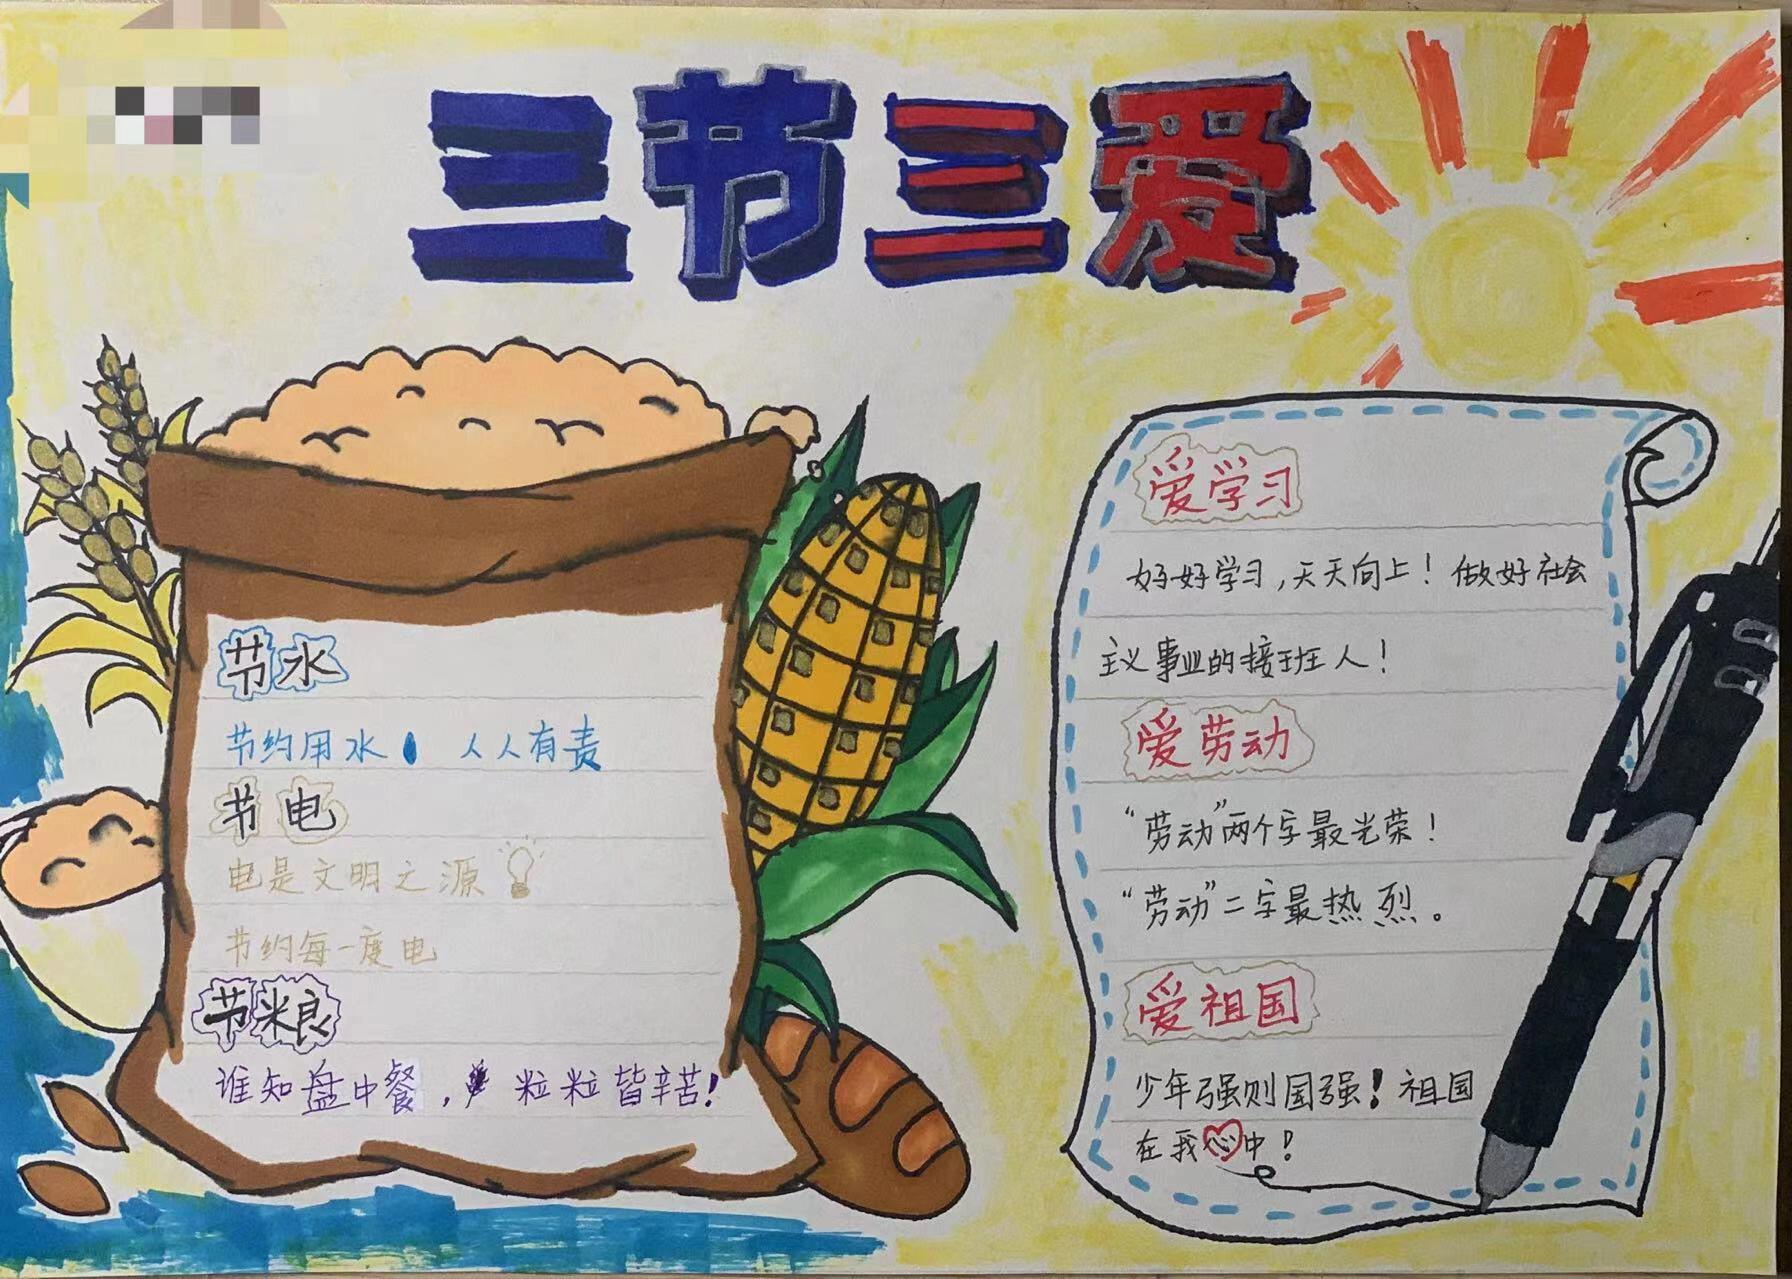 三节三爱
节水
节约用水 人人有责
节电
电是文明之源
节约每一度电
节粮
谁知盘中餐，粒粒皆辛苦！
爱学习
好好学习，天天向上！做好社会
主义事业的接班人！
爱劳动
“劳动”两个字最光荣！
“劳动”二字最热烈。
爱祖国
少年强则国强！祖国
在我心中！